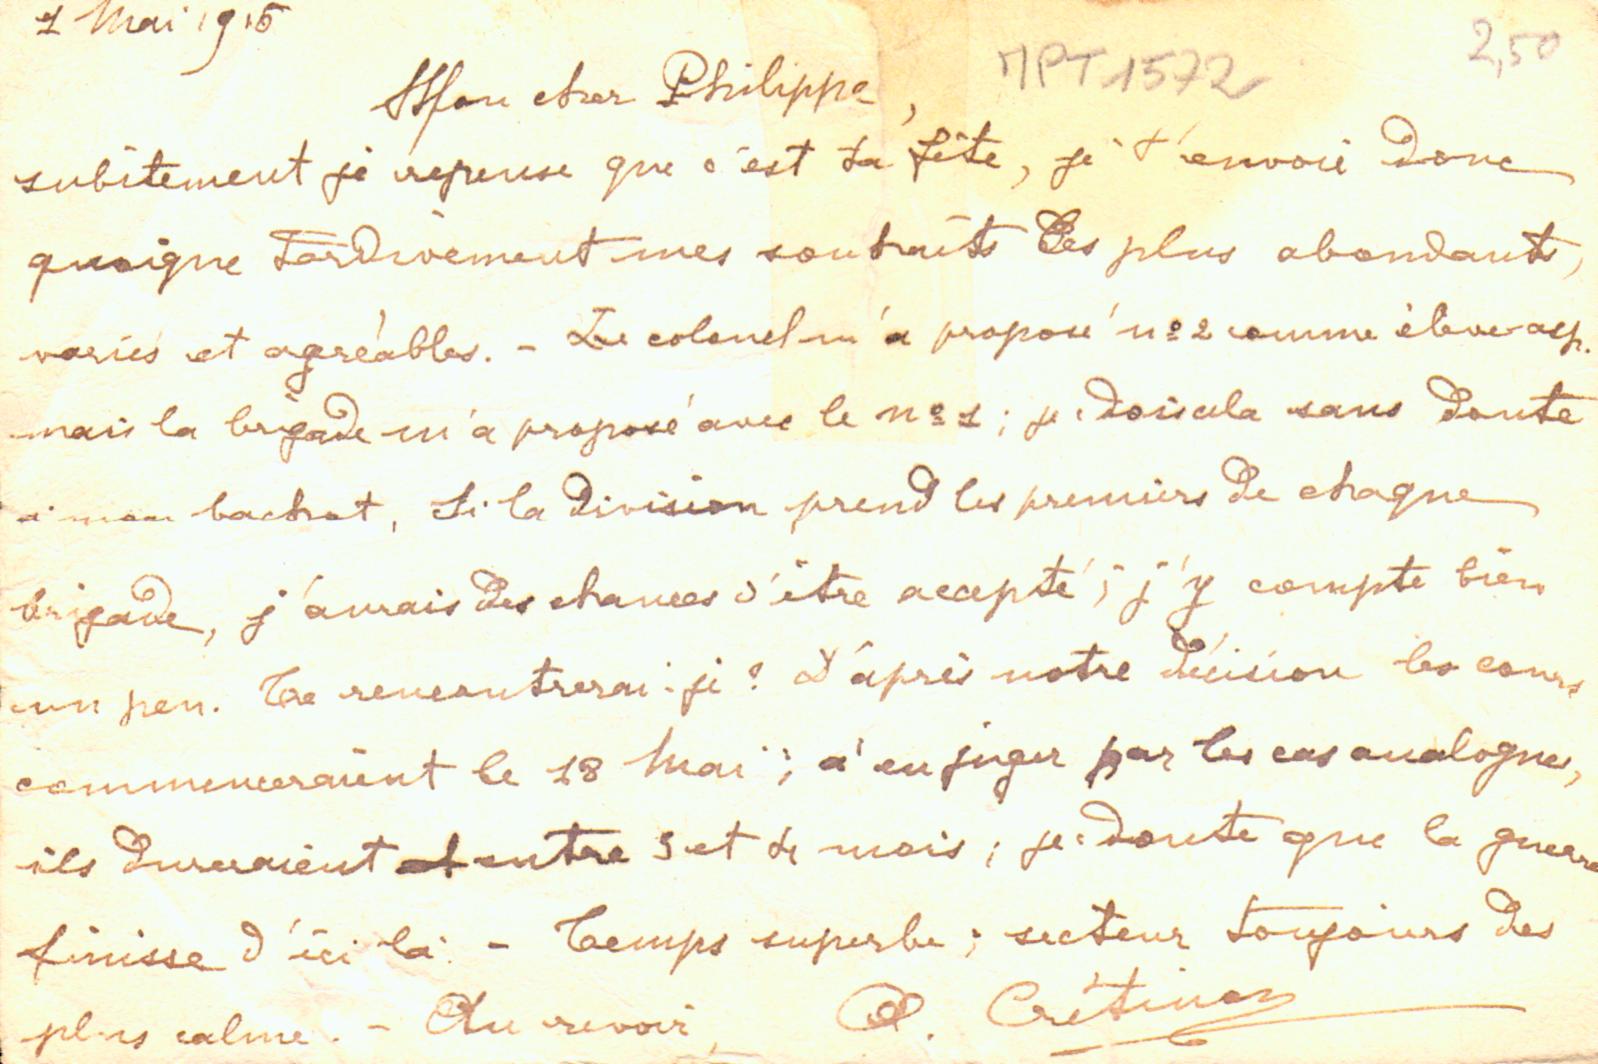 1 Mai 1916
MPT 1572
2,50
Mon cher Philippe,
subitement je repense que c'est ta fête, je t'envoie donc
quoique tardivement mes souhaits les plus abondants,
variés et agréables. - Le colonel m'a proposé nº 2 comme élève-asp.
mais la brigade m'a proposé avec le nº 1 ; je dois cela sans doute
à mon bachot. Si la division prend les premiers de chaque
brigade, j'aurais des chances d'être accepté ; j'y compte bien
un peu. Te rencontrerai-je ? D'après notre décision les cours
commenceraient le 18 Mai ; à en juger par les cas analogues,
ils dureraient entre 3 et 4 mois ; je doute que la guerre
finisse d'ici là. - Temps superbe ; secteur toujours des
plus calme. - Au revoir, Crétinon